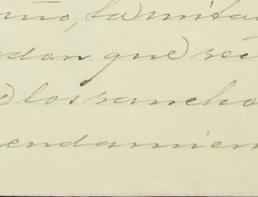 ño, la mita
dan que réi
los rancho
endamien